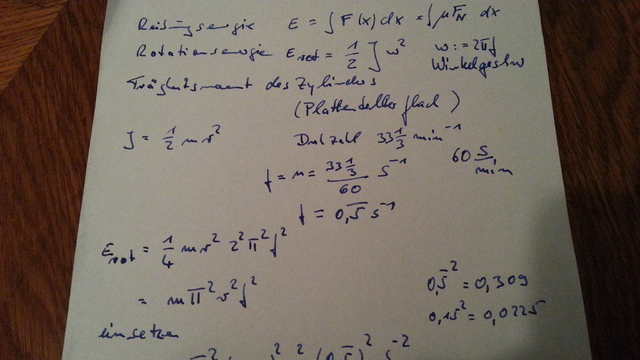 Reibungsenergie E = ∫ F(x) dx = ∫ μ F_N dx
Rotationsenergie E_rot = 1/2 J ω² ω := 2πf
Winkelgeschw
Trägheitsmoment des Zylinders
(Plattenteller flach)
J = 1/2 m r² Drehzahl 33 1/3 min⁻¹
f = n = (33 1/3)/60 s⁻¹ 60 s/min
f = 0,5̅ s⁻¹
E_rot = 1/4 m r² 2² π² f²
= m π² r² f² 0,5̅² = 0,309
0,15² = 0,0225
einsetzen